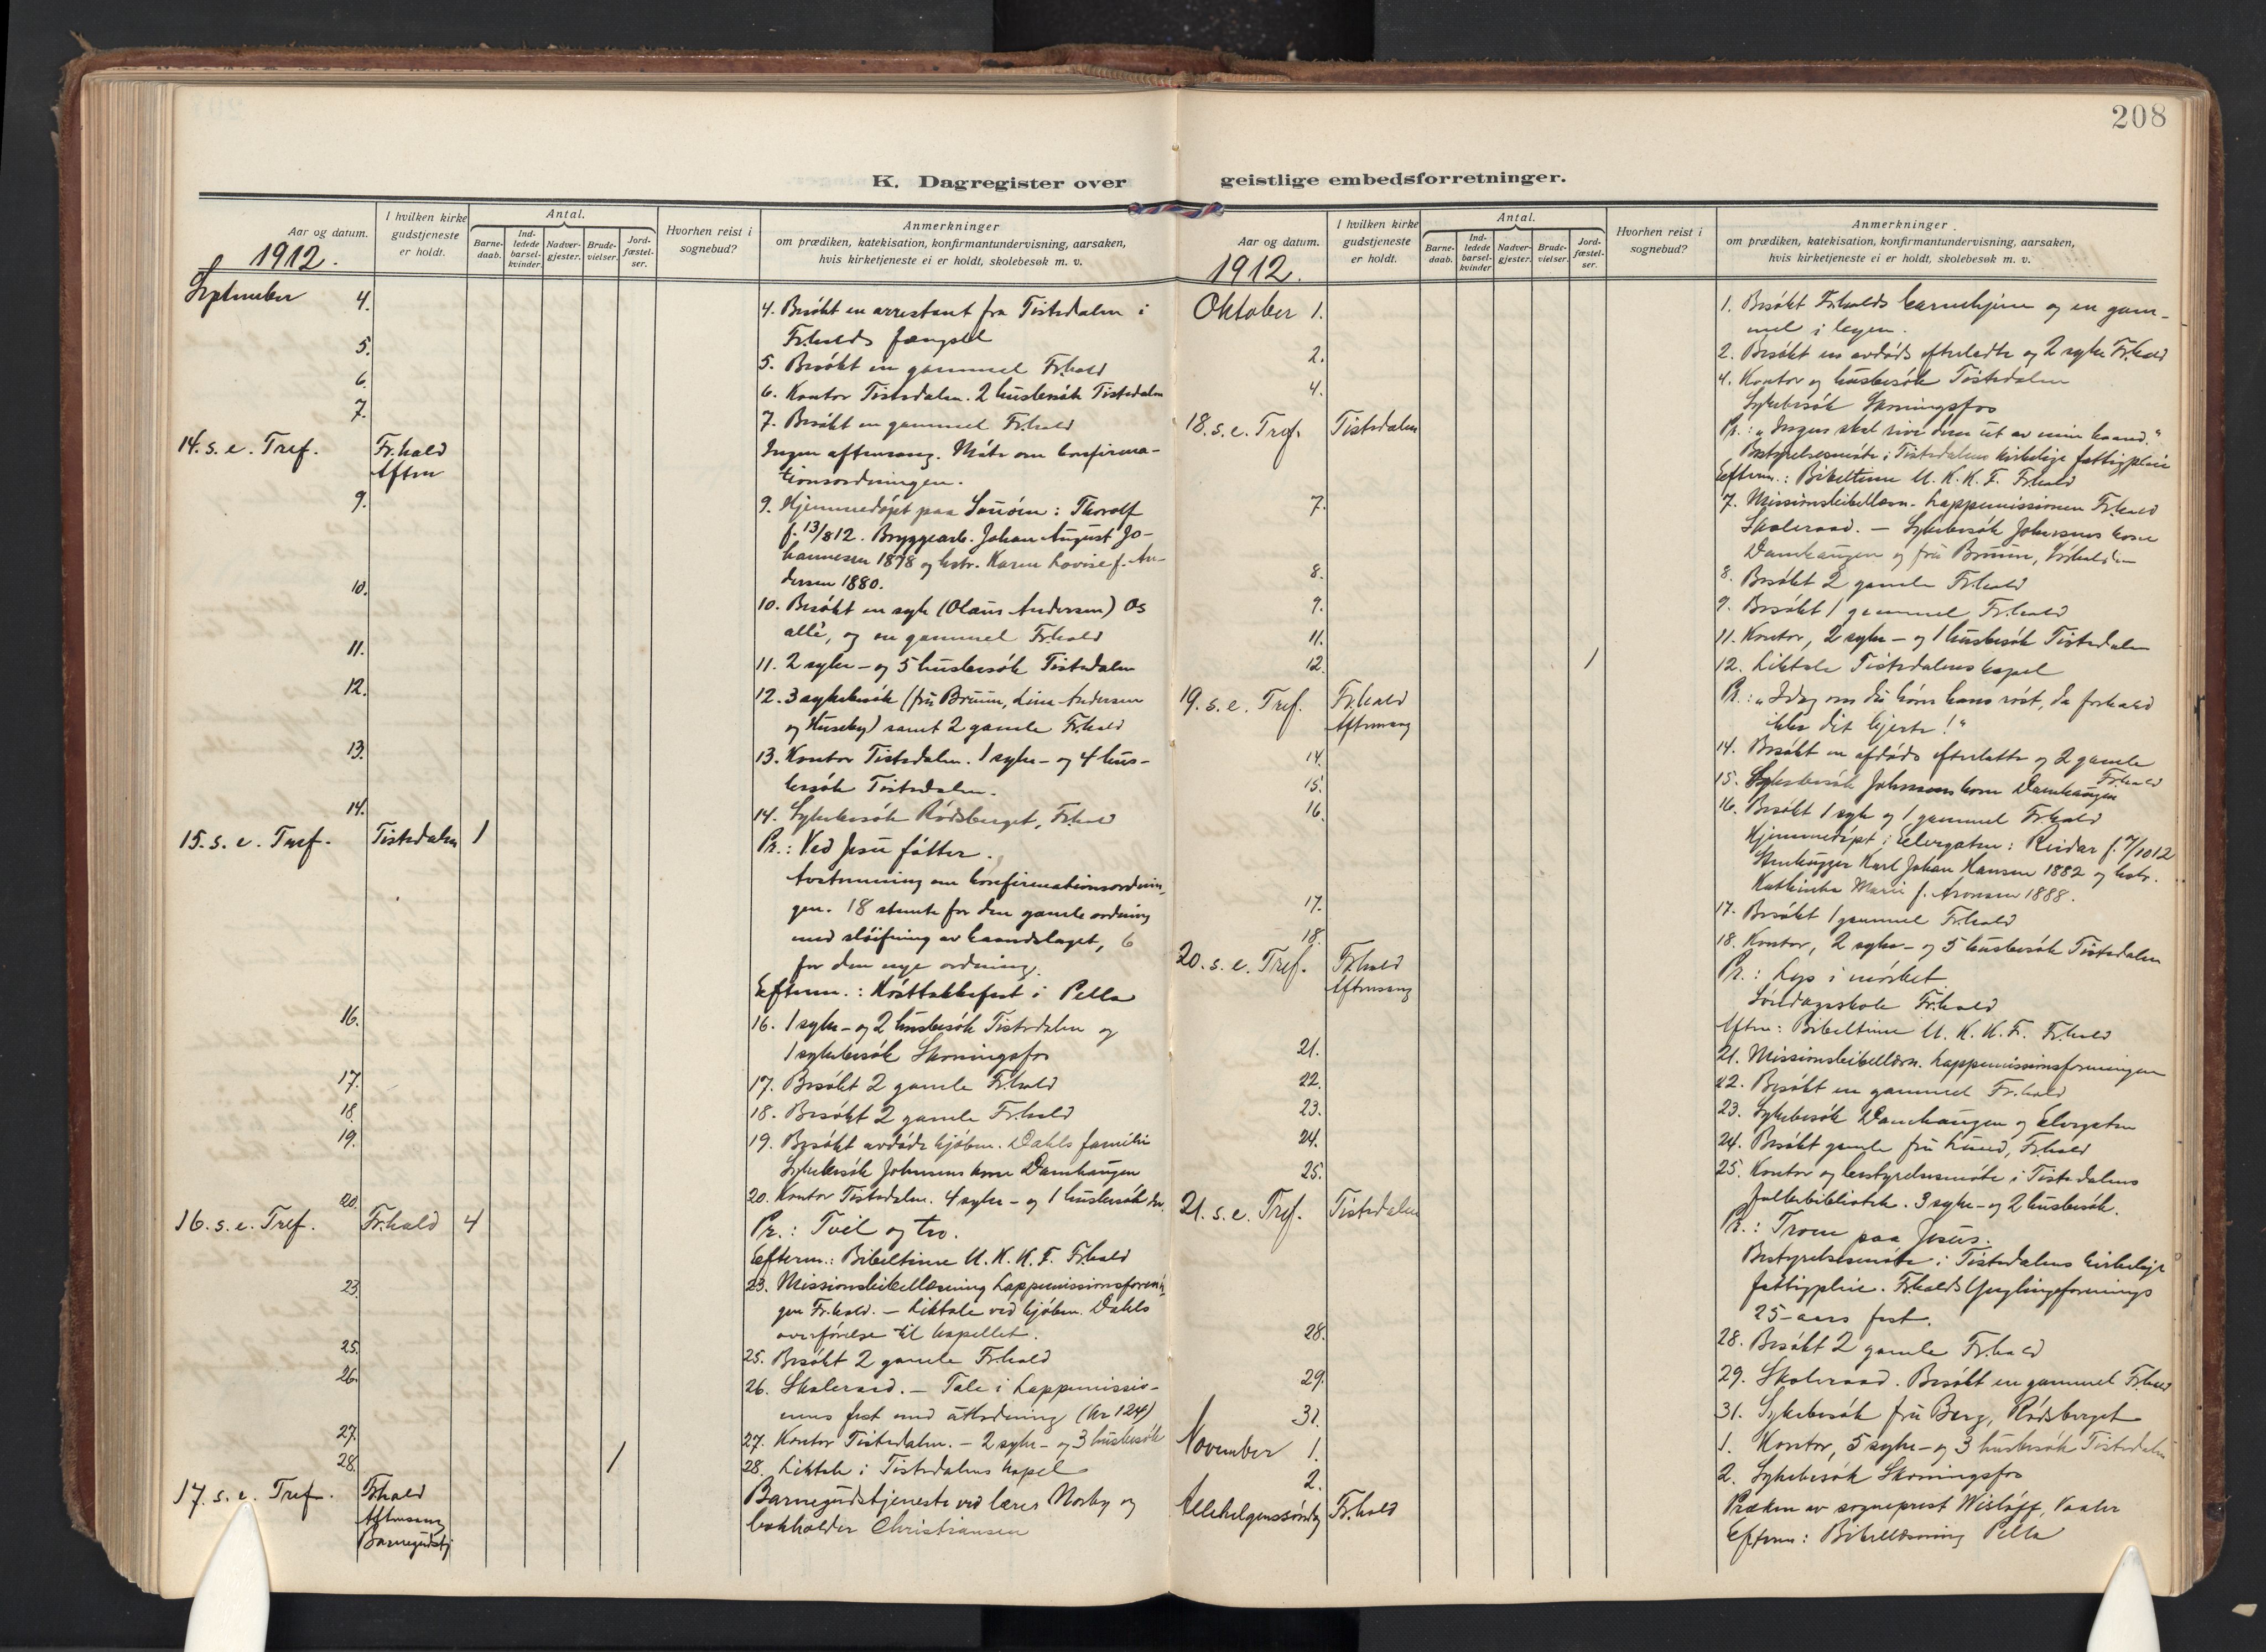 208
K. Dagregister over
geistlige embedsforretninger.
Aar og datum.
1912.
I hvilken kirke gudstjeneste er holdt.
Antal.
Barne-daab.
Ind-ledede barsel-kvinder.
Nadver-gjester.
Brude-vielser.
Jord-fæstel-ser.
Hvorhen reist i sognebud?
Anmerkninger
om prædiken, katekisation, konfirmantundervisning, aarsaken,
hvis kirketjeneste ei er holdt, skolebesøk m. v.
September 4.
4. Besökt en arrestant fra Tistedalen i
Fr.halds fængsel
5.
5. Besökt en gammel Fr.hald
6.
6. Kontor Tistedalen. 2 husbesök Tistedalen
7.
7. Besökt en gammel Fr.hald
14. s. e. Tref. Fr.hald
Aften
Ingen aftensang. Möte om konfirma-
tionsordningen.
9.
9. Hjemmedöpt paa Sauöen: Thorolf
f. 13/8 12. Bryggearb. Johan August Jo-
hannesen 1878 og hstr. Karen Lovise f. An-
dersen 1880.
10.
10. Besökt en syk (Olaus Andersen) Os
allé, og en gammel Fr.hald
11.
11. 2 syke- og 5 husbesök Tistedalen
12.
12. 3 sykebesök (fru Bruun, Line Andersen
og Huseby) samt 2 gamle Fr.hald
13.
13. Kontor Tistedalen. 1 syke- og 4 hus-
besök Tistedalen.
14.
14. Sykebesök Rödsberget, Fr.hald
15. s. e. Tref. Tistedalen 1
Pr.: Ved Jesu fötter.
Avstemning om konfirmationsordnin-
gen. 18 stemte for den gamle ordning
med slöifning av haandslaget, 6
for den nye ordning.
Efterm.: Hösttakkefest i Pella
16.
16. 1 syke- og 2 husbesök Tistedalen og
1 sykebesök Skonningsfos
17.
17. Besökt 2 gamle Fr.hald
18.
18. Besökt 2 gamle Fr.hald
19.
19. Besökt avdöde kjöbm. Dahls familie
Sykebesök Johnsens kone Damhaugen
20.
20. Kontor Tistedalen. 4 syke- og 1 husbesök
16. s. e. Tref. Fr.hald 4
Pr.: Tvil og tro.
Efterm.: Bibeltime U. K. K. F. Fr.hald
23.
23. Missionsbibellæsning Lappemissionsforenin-
gen Fr.hald. – Liktale ved kjöbm. Dahls
overförelse til kapellet.
25.
25. Besökt 2 gamle Fr.hald
26.
26. Skoleraad. – Tale i Lappemissio-
nens fest med utlodning (kr 124)
27.
27. Kontor Tistedalen. – 2 syke- og 3 husbesök
28. 1
28. Liktale i Tistedalens kapel
17. s. e. Tref. Fr.hald
Aftensang
Barnegudstj
Barnegudstjeneste ved lærer Norby og
bokholder Christiansen
Aar og datum.
1912.
I hvilken kirke gudstjeneste er holdt.
Antal.
Barne-daab.
Ind-ledede barsel-kvinder
Nadver-gjester.
Brude-vielser.
Jord-fæstel-ser.
Hvorhen reist i sognebud?
Anmerkninger.
om prædiken, katekisation, konfirmantundervisning, aarsaken,
hvis kirketjeneste ei er holdt, skolebesøk m. v.
Oktober 1.
1. Besökt Fr.halds barnehjem og en gam-
mel i byen.
2.
2. Besökt en avdöds efterladte og 2 syke Fr.hald
4.
4. Kontor og husbesök Tistedalen
Sykebesök Skonningsfos
18. s. e. Tref. Tistedalen
Pr.: "Ingen skal rive dem ut av min haand."
Bestyrelsesmöte i Tistedalens kirkelige fattigpleie
Efterm.: Bibeltime U. K. K. F. Fr.hald
7.
7. Missionsbibellæsn. Lappemissionen Fr.hald
Skoleraad. – Sykebesök Johnsens kone
Damhaugen og fru Bruun,
8.
8. Besökt 2 gamle Fr.hald
9.
9. Besökt 1 gammel Fr.hald
11.
11. Kontor, 2 syke- og 1 husbesök Tistedalen
12. 1
12. Liktale Tistedalens kapel
19. s. e. Tref. Fr.hald
Aftensang
Pr.: "Idag om du hörer hans röst, da forhærd
ikke dit hjerte!"
14.
14. Besökt en afdöds efterlatte og 2 gamle
Fr.hald
15.
15. Sykebesök Johnsens kone Damhaugen
16.
16. Besökt 1 syk og 1 gammel Fr.hald
Hjemmedöpt i Elvegaten: Reidar f. 7/10 12
Stenhugger Karl Johan Hansen 1882 og hstr.
Kathinka Marie f. Aronsen 1888.
17.
17. Besökt 1 gammel Fr.hald
18.
18. Kontor, 2 syke- og 5 husbesök Tistedalen
20. s. e. Tref. Fr.hald
Aftensang
Pr.: Lys i mörket
Söndagsskole Fr.hald
Aften: Bibeltime U. K. K. F. Fr.hald
21.
21. Missionsbibellæsn. Lappemissionsforeningen
22.
22. Besökt en gammel Fr.hald
23.
23. Sykebesök Damhaugen og Elvegaten
24.
24. Besökt gamle fru Lund, Fr.hald
25.
25. Kontor og bestyrelsesmöte i Tistedalens
folkebibliotek. 3 syke- og 2 husbesök.
21. s. e. Tref. Tistedalen
Pr.: Troen paa Jesus.
Bestyrelsesmöte i Tistedalens kirkelige
fattigpleie. Fr.halds Ynglingeforenings
25-aars fest.
28.
28. Besökt 2 gamle Fr.hald
29.
29. Skoleraad. Besökt en gammel Fr.hald
31.
31. Sykebesök fru Berg, Rödsberget
November 1.
1. Kontor, 5 syke- og 3 husbesök Tistedalen
2.
2. Sykebesök Skonningsfos
Allehelgenssöndag Fr.hald
Præken av sogneprest Wislöff, Vaaler
Efterm: Bibellæsning Pella